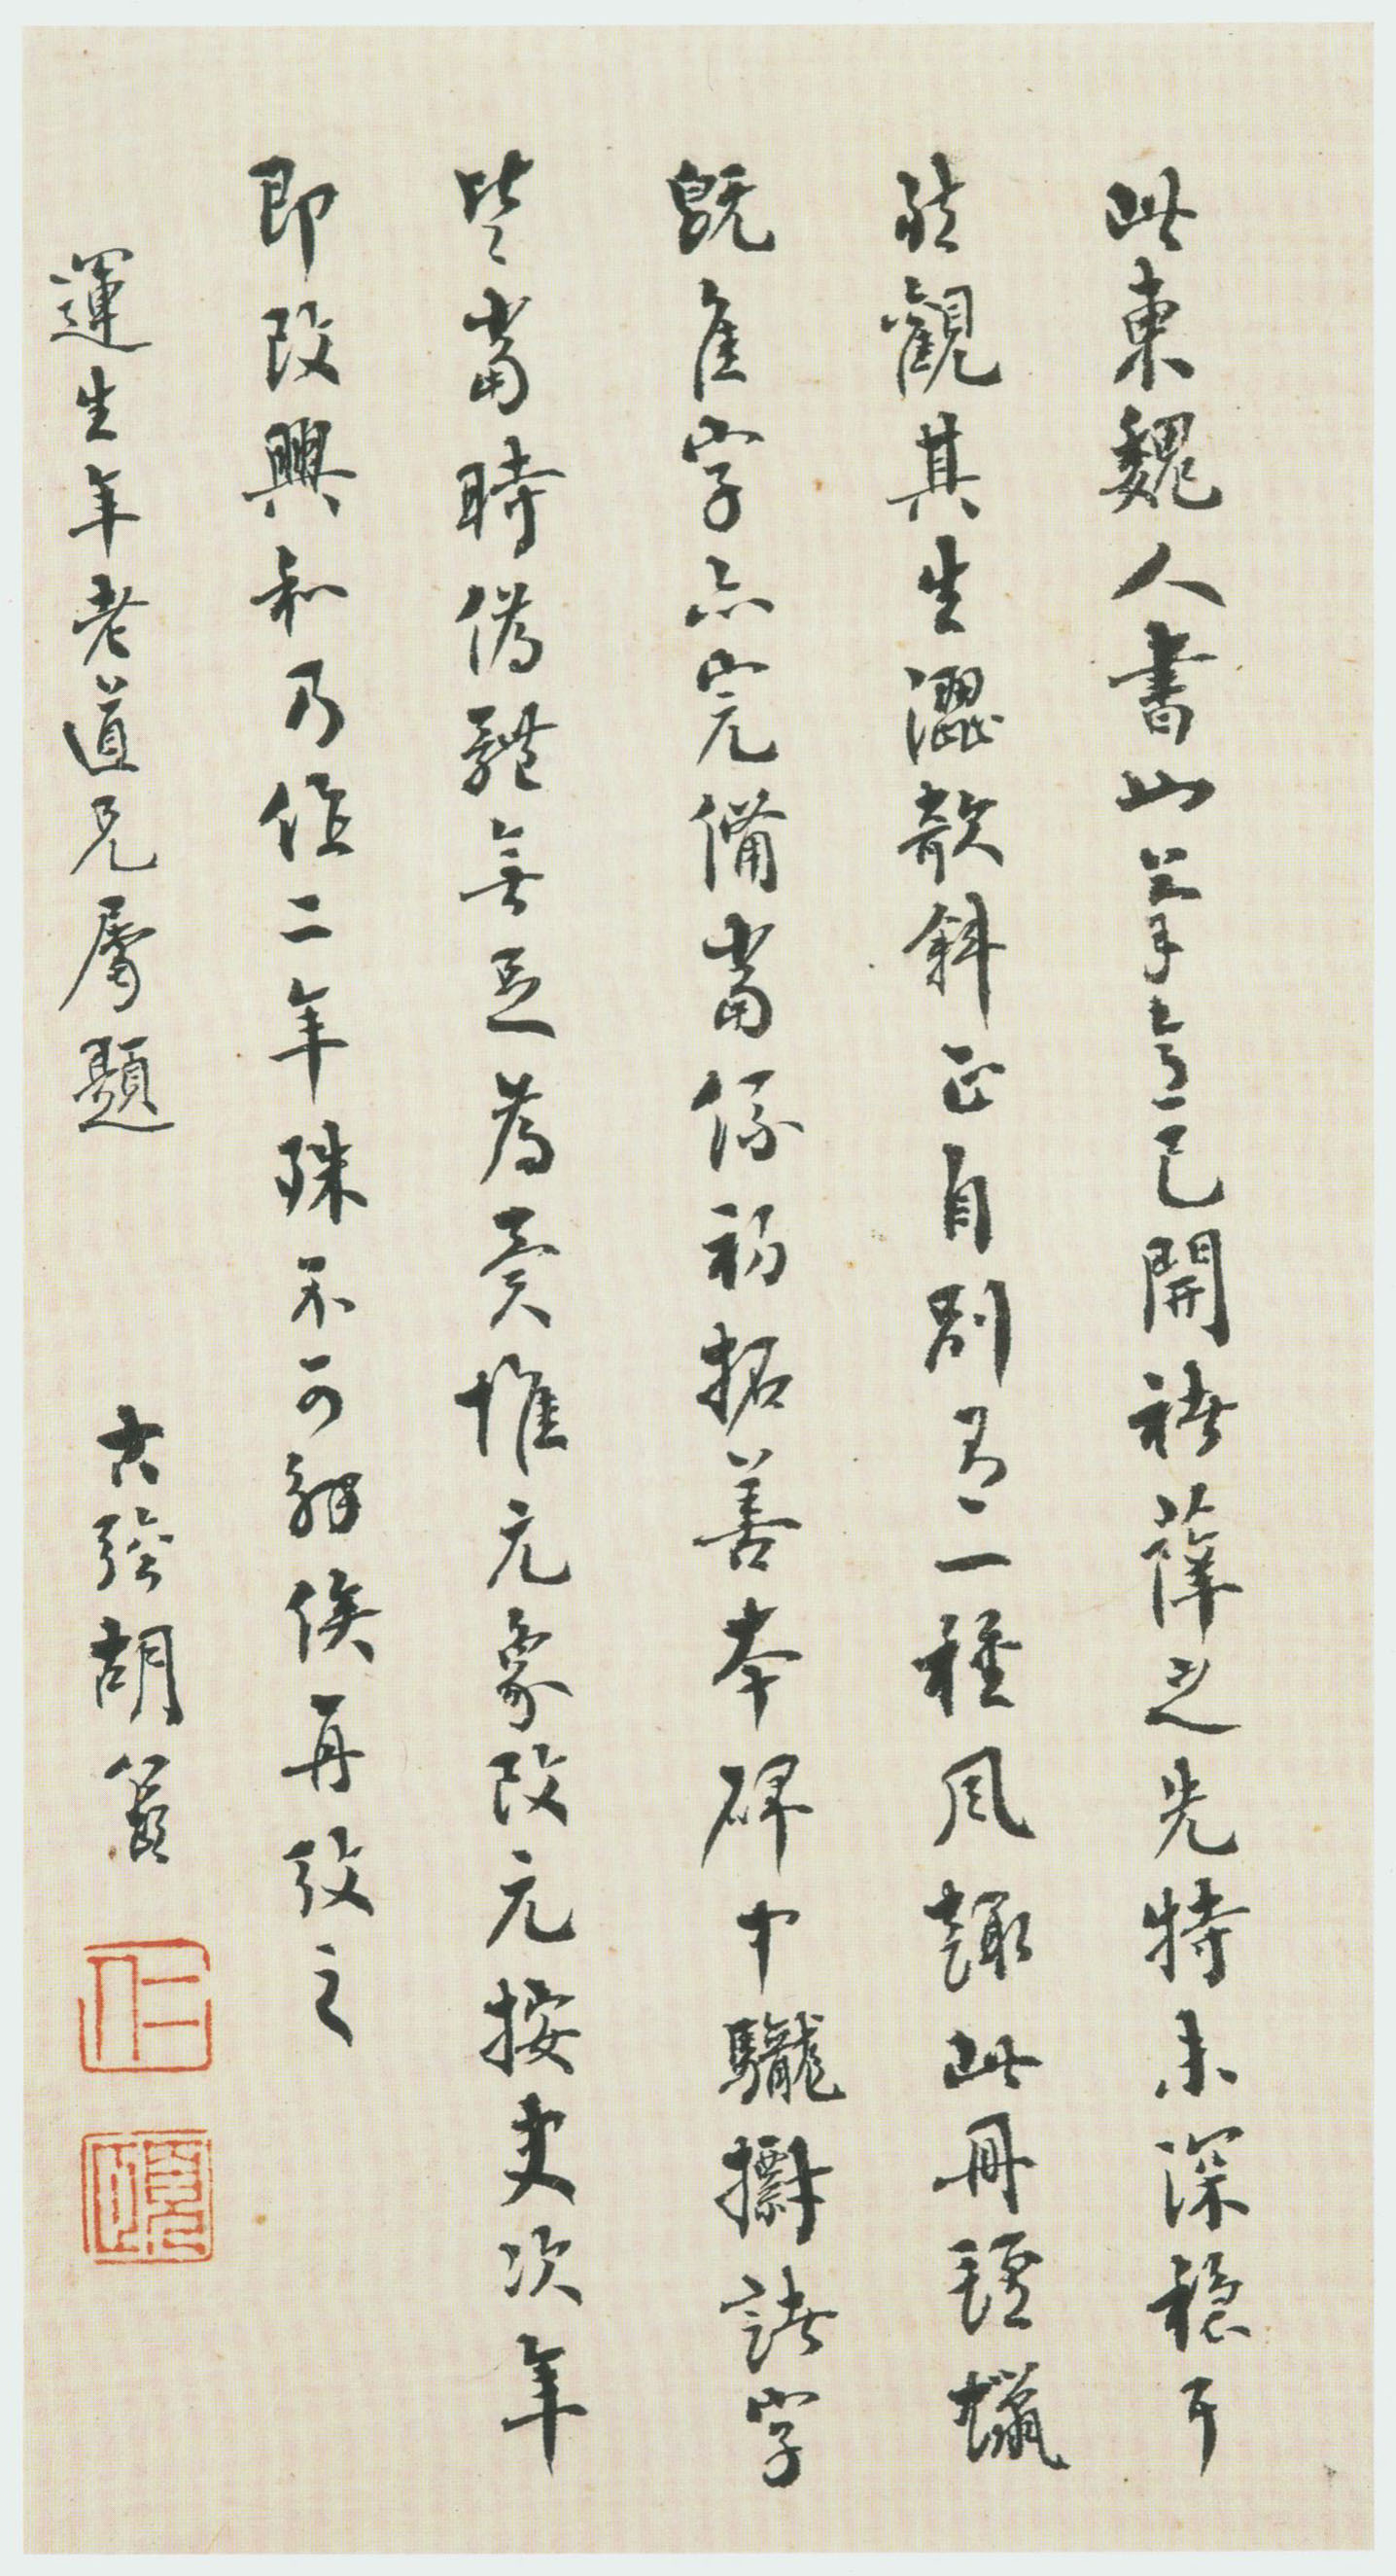 此東魏人書也筆意已開褚薛之先特未深穩耳
然觀其生澀欹斜正自別有一種風趣此冊氈蠟
既佳字亦完備當係初拓善本碑中諸字
皆當時偽體無足為異惟元象改元按史次年
即改興和乃作二年殊不可解俟再攷之
運生年老道兄屬題
古胡